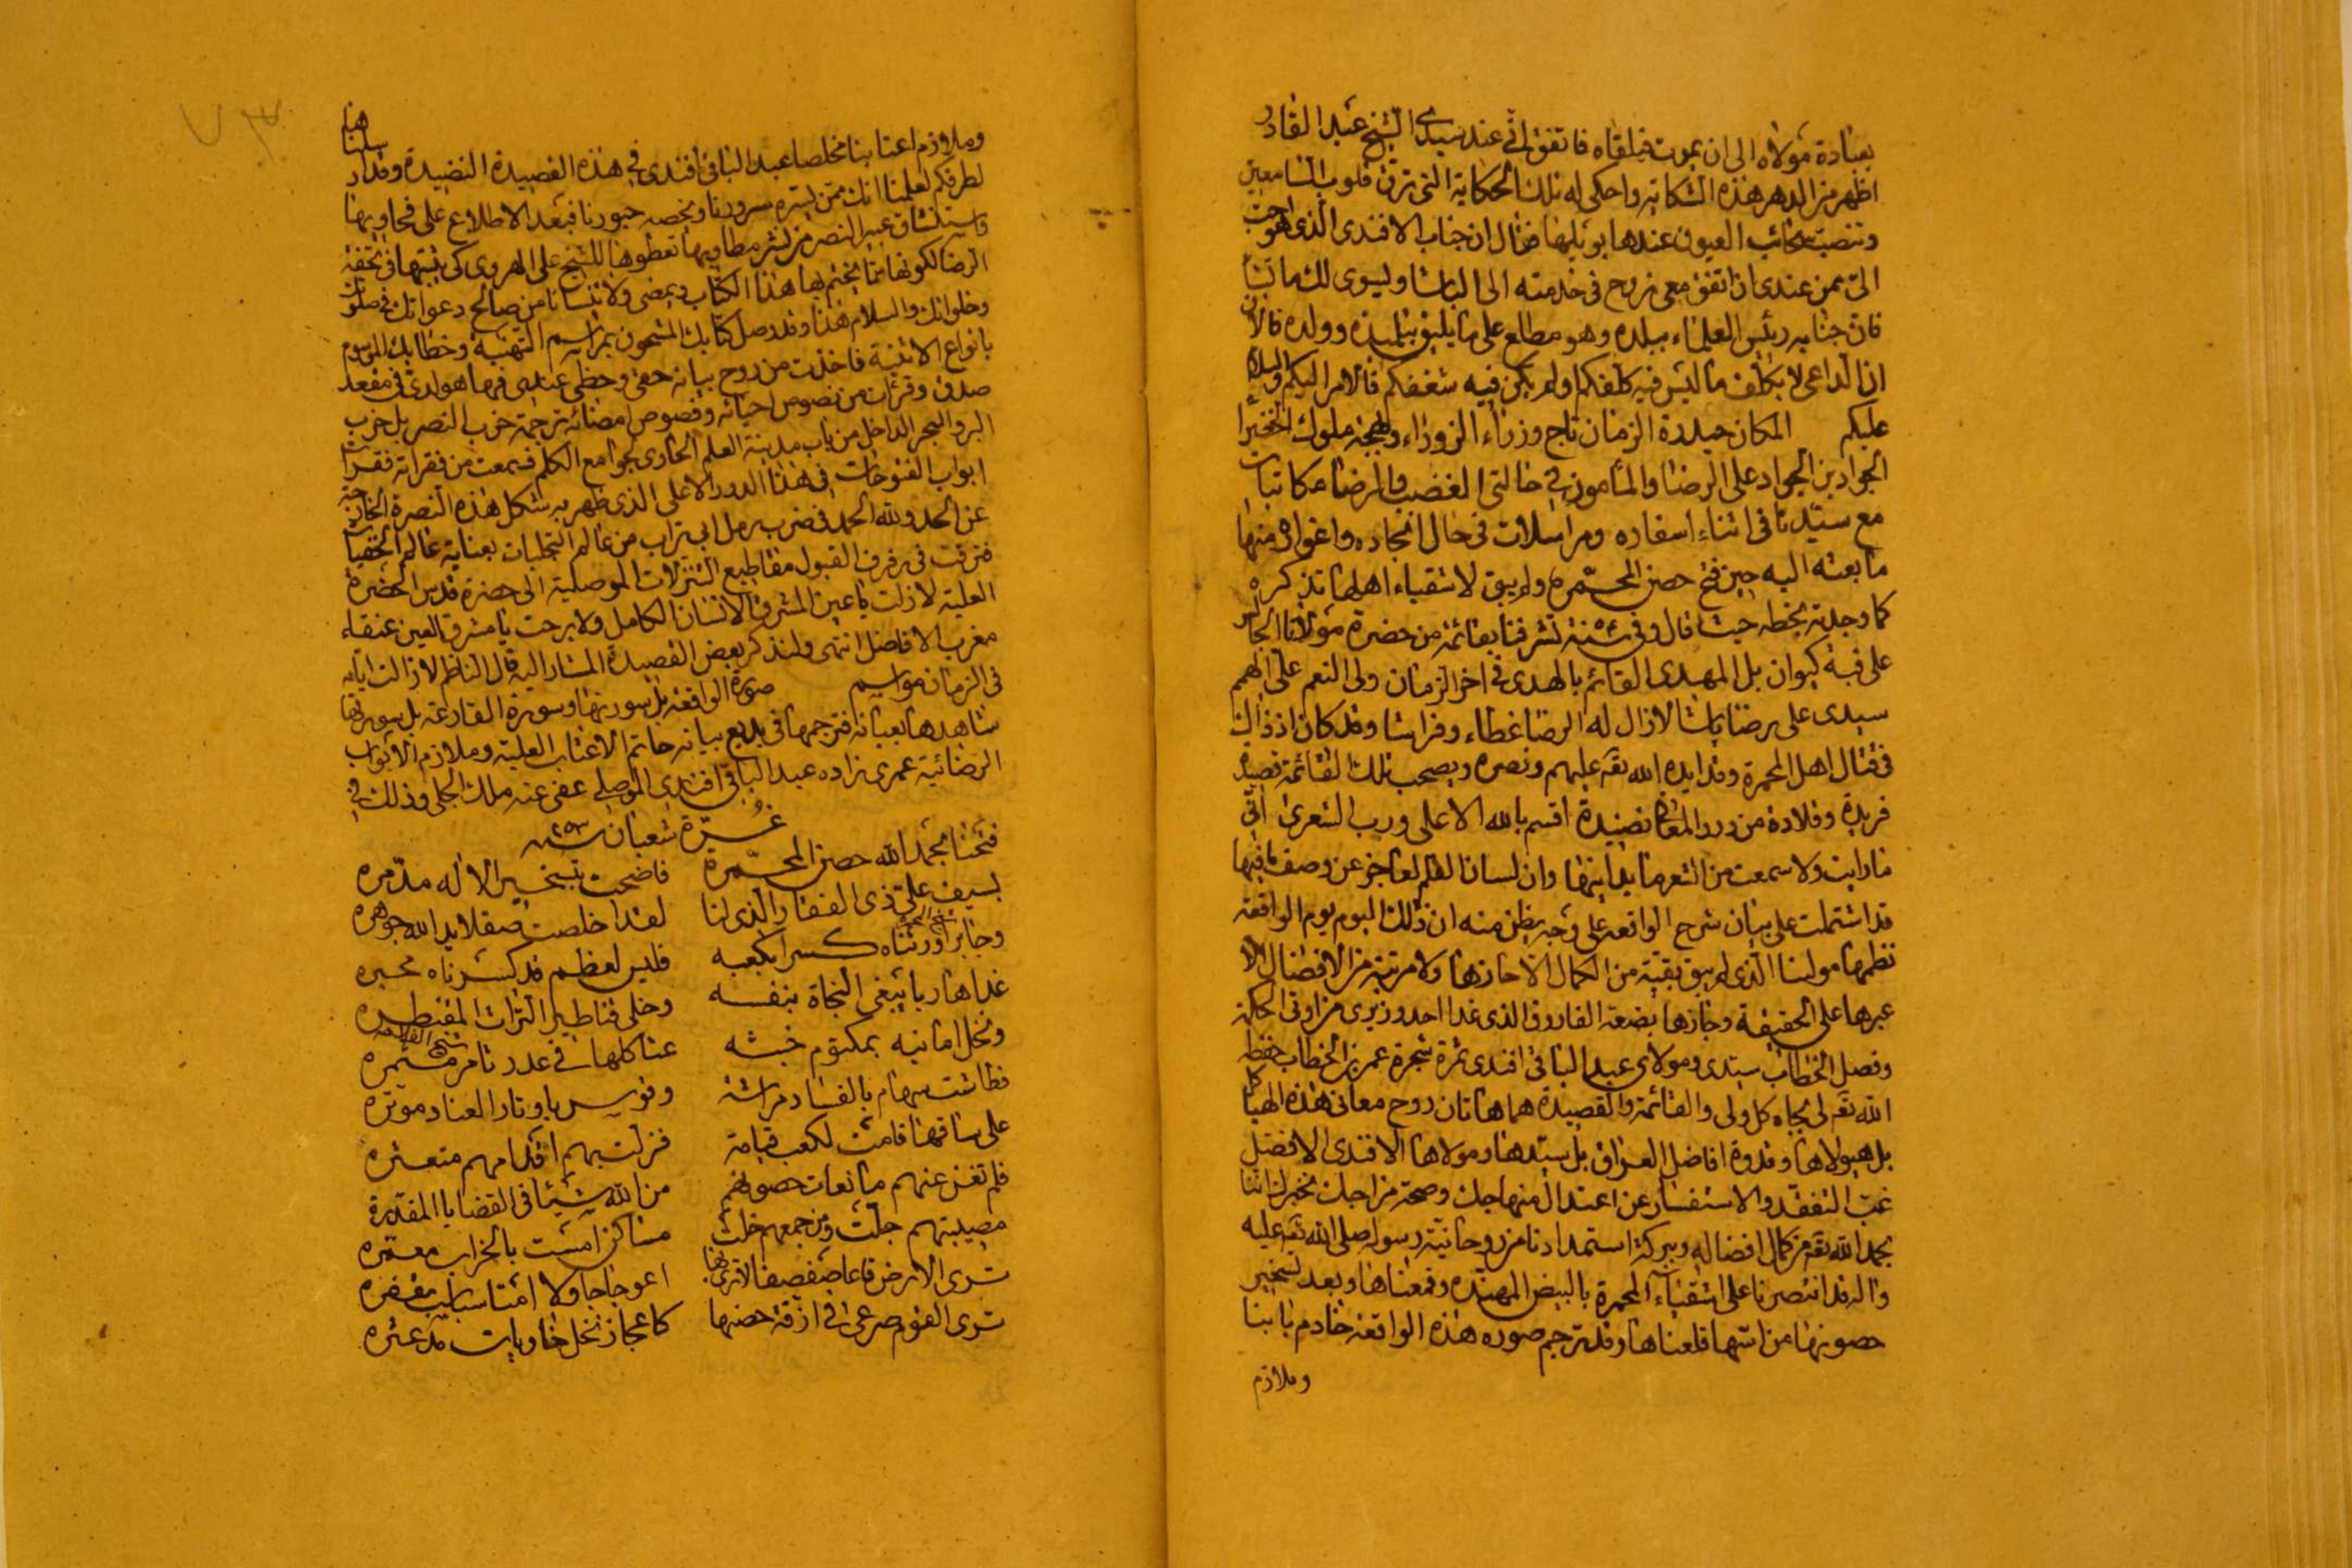 بعبادة مولاه الى ان يموت فيلقاه فاتفق انى عند سيدى الشيخ عبد القادر
اظهر من الدهر هذه الشكاية واحكى له تلك الحكاية التى ترق قلوب السامعين
وتنصب سحائب العيون عندها بويلها فقال ان جناب الافندى الذى هو احب
الىّ ممن عندى ان اتفق معى نروح فى خدمته الى الباشا ويسوى لك ما تشا
فان جنابه رئيس العلماء ببلده وهو مطلع على ما يليق بتلميذه وولده فالان
ان الداعى لا يكلف ما ليس فيه كلفتكم ولم يكن فيه شغفكم فالامر اليكم والسلام
عليكم المكان حيدرة الزمان تاج وزراء الزوراء وبهجة ملوك الخضرا
الجواد بن الجواد على الرضا والمأمون فى حالتى الغضب والرضا مكاتبات
مع سيدنا فى اثناء اسفاره ومراسلات فى حال انجاده واغواره منها
ما بعثه اليه حين فتح حصن المحمّره ولم يبق لاشقياء اهلها تذكره
كما وجدته بخطه حيث قال وفى سنة تشرفنا بقائمة من حضرة مولانا الجالس
على قبة كيوان بل المهدى القائم بالهدى فى اخر الزمان ولى النعم علىّ الهمم
سيدى على رضا باشا لازال له الرضا غطاء وفراشا وقد كان اذ ذاك
فى قتال اهل المحمرة وقد ايده الله تعه عليهم ونصره وبصحب تلك القائمة قصيدة
فريدة وقلادة من درر المعانى نضيدة اقسم بالله الاعلى ورب الشعرى انى
ما رايت ولا سمعت من الشعر ما يدانيها وان لسان القلم لعاجز عن وصف ما فيها
قد اشتملت على بيان شرح الواقعة على وجه يظن منه ان ذلك اليوم يوم الواقعة
نظمها مولينا الذى لم يبق بقية من الكمال الا حازها ولا مرتبة من الافضال الا
عبرها على الحقيقة وجازها بضعة الفاروق الذى غدا احد وزيرى من اوتى الحكمة
وفصل الخطاب سيدى ومولاى عبد الباقى افندى ثمرة شجرة عمر بن الخطاب حفظه
الله تعه لى بجاه كل ولى والقائمة والقصيدة هما هاتان روح معانى هذه الهياكل
بل هيولاها وقدوة افاضل العراق بل سيدها ومولاها الافندى الافضل
غب التفقد والاستفسار عن اعتدال منهاجك وصحة مزاجك نخبرك اننا
بحمد الله تعه من كمال افضاله وببركة استمدادنا من روحانية رسوله صلى الله تعه عليه
واله قد انتصرنا على اشقياء المحمرة بالبيض المهنده وقمعناها وبعد تسخير
حصونها من اسها قلعناها وقد ترجم صوره هذه الواقعة خادم بابنا
وملازم
وملازم اعتابنا مخلصا عبد الباقى افندى فى هذه القصيدة النضيدة وقد ارسلناها
لطرفكم لعلمنا انك ممن يسره سرورنا ويخصه حبورنا فبعد الاطلاع على فحاويها
واستنشاق عبير النصر من نشر مطاويها تعطوها للشيخ على الهروى كى يثبتها فى تحفة
الرضا لكونها مما يختم بها هذا الكتاب ويمضى ولا تنسانا من صالح دعواتك فى صلواتك
وخلواتك والسلام هذا وقد وصل كتابك المشحون بمراسم التهنية وخطابك الموسوم
بانواع الاثنية فاخذت من روح بيانه حقى وحظى عندى فيها هو لدىّ فى مقعد
صدق وقرئت من نصوص احيائه وفصوص امضائه ترجمة حزب النصر بل حزب
البر والبحر الداخل من باب مدينة العلم الحاوى لجوامع الكلم فسمعت من فقراته فقرات
ابواب الفتوحات فى هذا الدور الاعلى الذى ظهر به شكل هذه النصرة الخارجة
عن الحد ولله الحمد فى ضرب رمل ابى تراب من عالم التجليات بعناية عالم الخفيات
فترقت فى رفرف القبول مقاطيع التنزلات الموصلية الى حضرة قدس الحضرة
العلية لازلت يا عين المشرق الانسان الكامل ولا برحت يا مشرق العين عنقاء
مغرب الافاضل انتهى ولنذكر بعض القصيدة المشار اليه قال الناظم لازالت ايامه
فى الزمان مواسيم صورة الواقعة بل سورتها وسورة القارعة بل سورتها
شاهدها بعيانه فترجمها فى بديع بيانه خاتم الاعتاب العلية وملازم الابواب
الرضائية عمرى زاده عبد الباقى افندى الموصلى عفى عنه ملك الجلى وذلك فى
غرّة شعبان سنة ١٢٥٣
فتحنا بحمد الله حصن المحمّرة فاضحت بتسخير الاله مدمّره
بسيف علىّ ذى الفقار الذى لنا لقد اخلصت صقلا يد الله جوهره
وجابر اورثناه كسرا بكعبه فليس لعظم قد كسرناه مجبره
غدا هاربا يبغى النجاة بنفسه وخلى قناطير التراث المقنطره
ونخل امانيه بمكتوم خبثه عثاكلها فى عدد ثامر مثمره
فطاشت سهام بالفساد مراشة وقوس باوتار العناد موتره
على ساقها قامت لكعب قيامة فزلت بهم اقدامهم متعثره
فلم تغن عنهم مانعات حصونهم من الله شيئا فى القضايا المقدرة
مصيبتهم جلت ومن جمعهم خلت مساكن امست بالخراب معمّره
ترى الارض قاعا صفصفا لا ترى بها اعوجاجا ولا امتا سباسب مقفره
ترى القوم صرعى فى ازقة حصنها كاعجاز نخل خاويات مدعثره